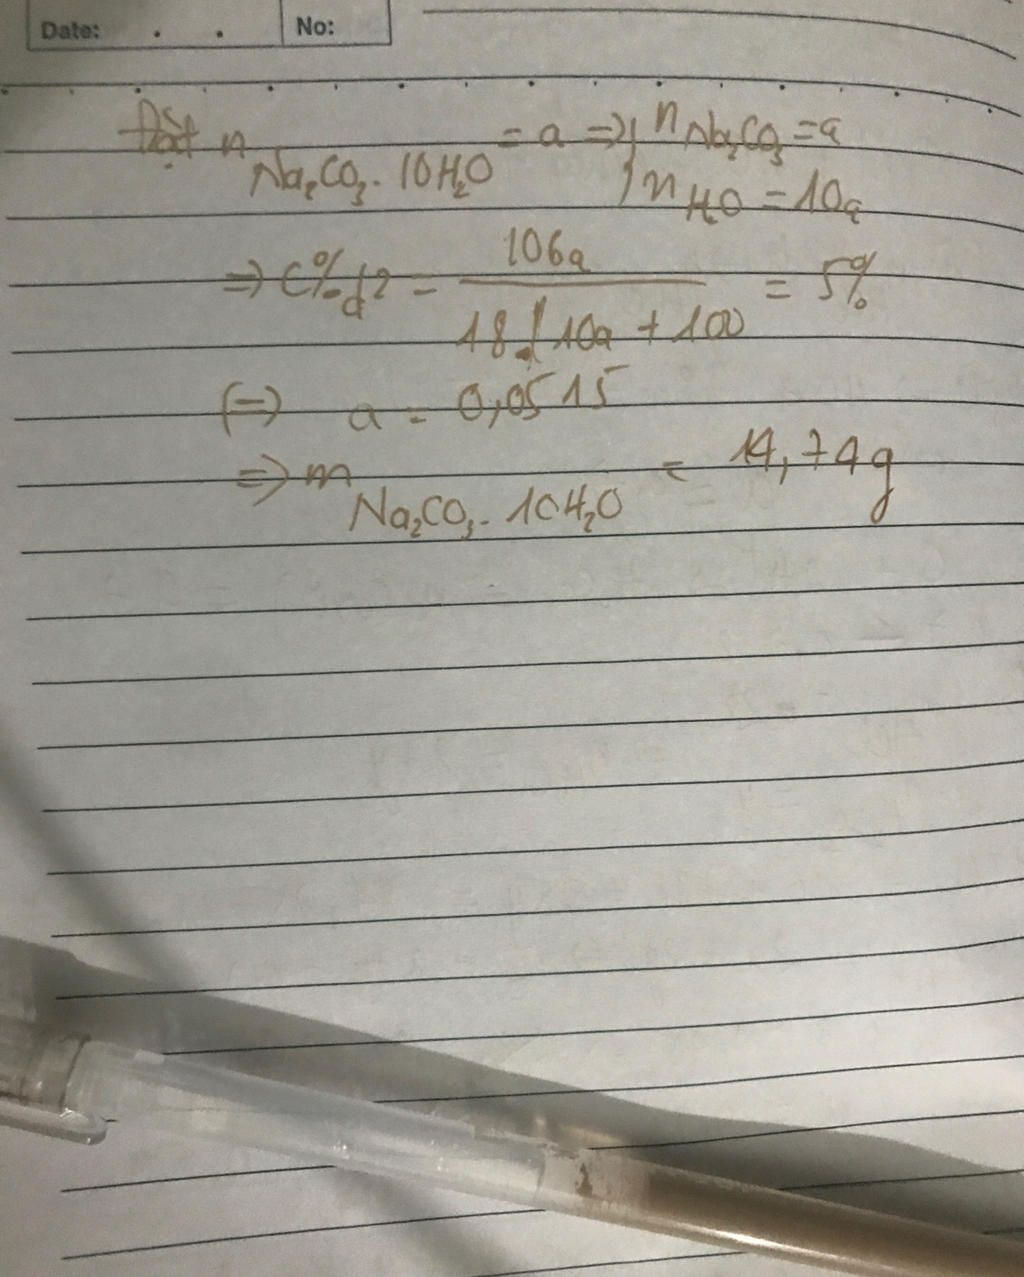 Date: . . No:
Đặt n Na₂CO₃.10H₂O = a => { n Na₂CO₃ = a
n H₂O = 10a
=> C% d² = 106a / 18.10a + 100 = 5%
(=) a = 0,0515
=> m Na₂CO₃.10H₂O = 14,74g